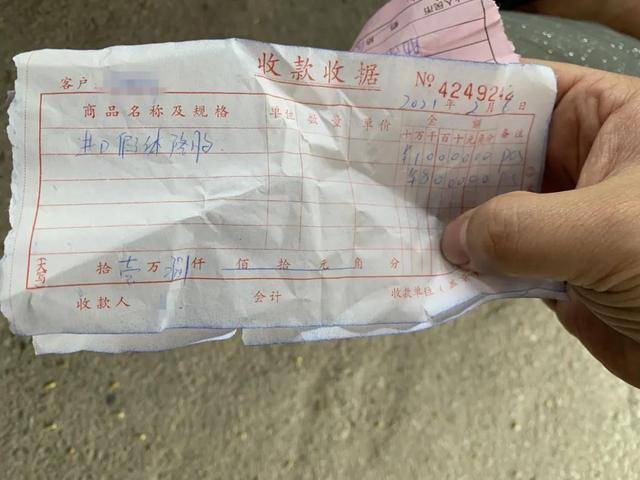 收款收据
客户:
№ 42492
2021年2月4日
商品名称及规格 单位 数量 单价 金额
十万千百十元角分 备注
进口假体隆胸
¥1000000 POS
¥800000
大写 拾壹万捌仟 佰 拾 元 角 分
收款人 会计 收款单位
人民币